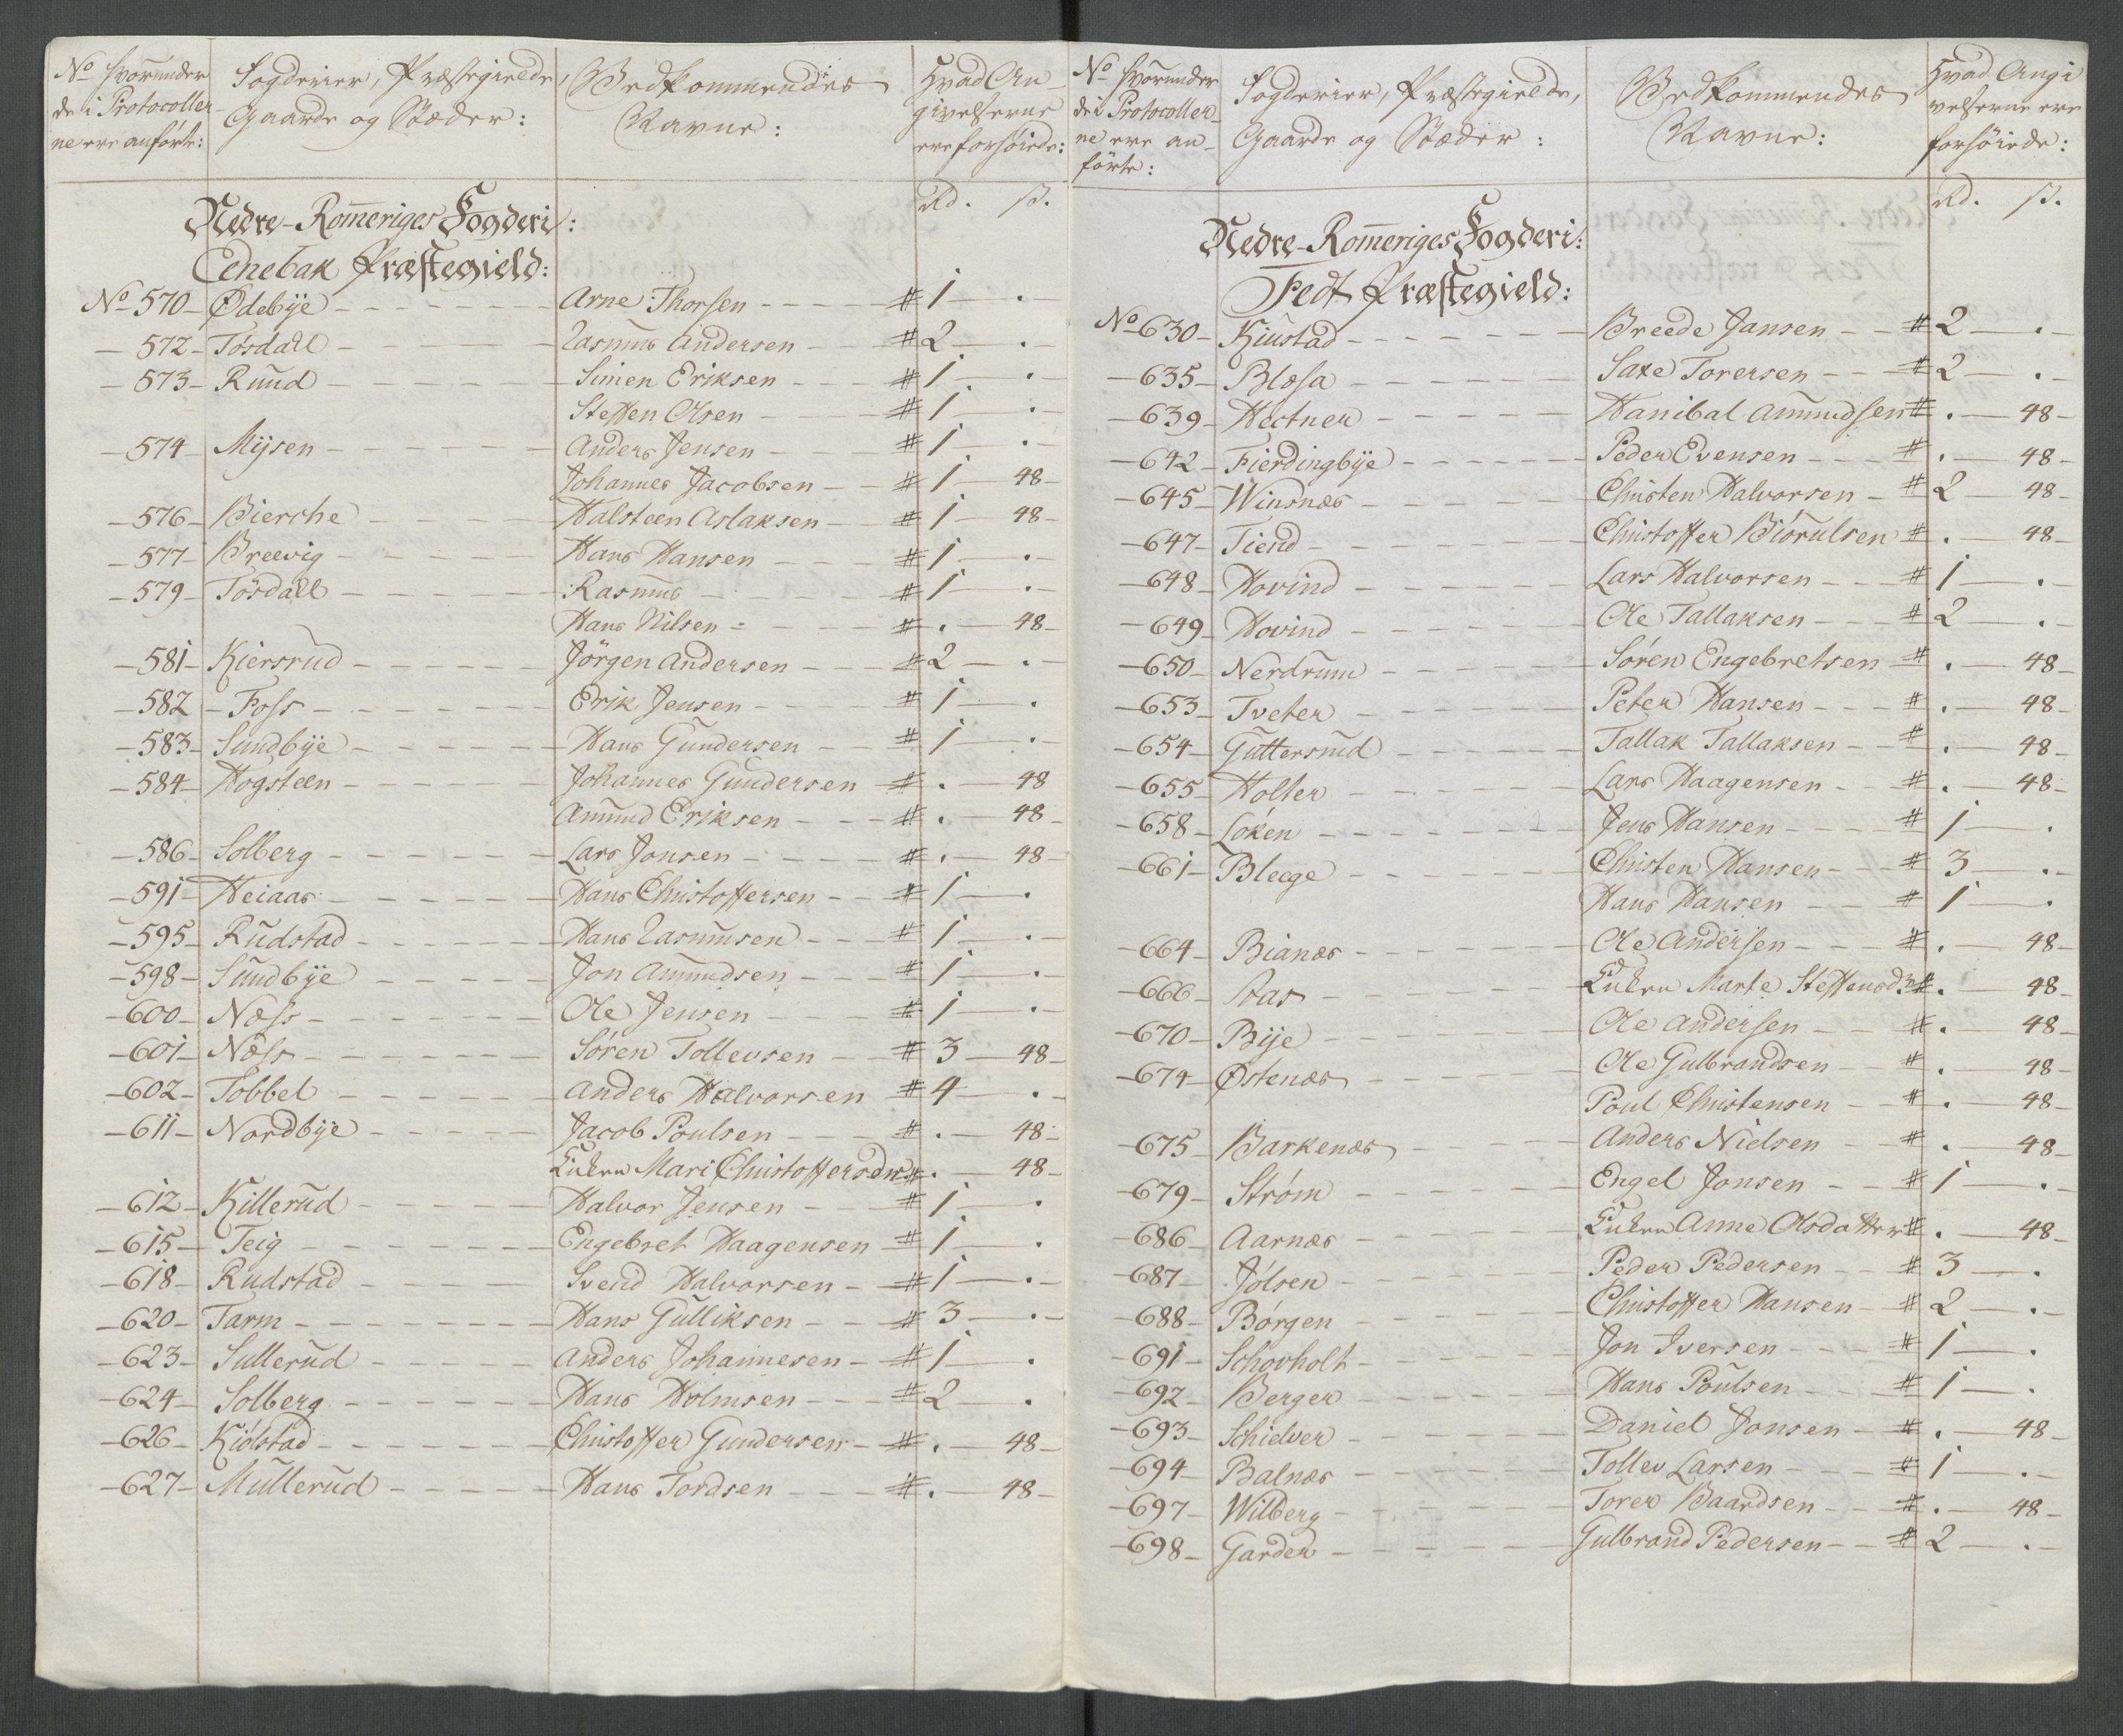 No hvorunder de i Protocollerne ere anførte: | Fogderier, Præstegielde, Gaarde og Stæder: | Vedkommendes Navne: | Hvad Angivelserne ere forhøiede:
Rd. ß.
Nedre-Romeriges Fogderi:
Enebak Præstegield:
No 570 Ødebÿe Arne Thorsen # 1 .
572 Tósdall Rasmus Andersen # 2 .
573 Ruud Simen Eriksen # 1 .
Steffen Olsen # 1 .
574 Mÿsen Anders Jensen # 1 .
Johannes Jacobsen # 1 48
576 Bierche Halsteen Aslaksen # 1 48
577 Breevig Hans Hansen # 1 .
579 Tósdall Rasmus # 1 .
Hans Nilsen # . 48
581 Kiersrud Jörgen Andersen # 2 .
582 Foss Erik Jensen # 1 .
583 Sundbÿe Hans Gundersen # 1 .
584 Hogsteen Johannes Gundersen # . 48
Amund Eriksen # . 48
586 Solberg Lars Jonsen # . 48
591 Heiaas Hans Christoffersen # 1 .
595 Rudstad Hans Rasmusen # 1 .
598 Sundbÿe Jon Amundsen # 1 .
600 Næss Ole Jensen # 1 .
601 Næss Søren Tollevsen # 3 48
602 Tobbel Anders Halvorsen # 4 .
611 Nordbÿe Jacob Poulsen # . 48
Enken Mari Christoffersdr # . 48
612 Killerud Halvor Jensen # 1 .
615 Teig Engebret Haagensen # 1 .
618 Rudstad Svend Halvorsen # 1 .
620 Tarm Hans Gulliksen # 3 .
623 Sullerud Anders Johannesen # 1 .
624 Solberg Hans Holmsen # 2 .
626 Kiølstad Christoffer Gundersen # . 48
627 Mullerud Hans Tordsen # . 48
No hvorunder de i Protocollerne ere anførte: | Fogderier, Præstegielde, Gaarde og Stæder: | Vedkommendes Navne: | Hvad Angivelserne ere forhøiede:
Rd. ß.
Nedre-Romeriges Fogderi:
Fedt Præstegield:
No 630 Kiustad Breede Jansen # 2 .
635 Blæsa Saxe Torersen # 2 .
639 Hectner Hanibal Amundsen # . 48
642 Fierdingbÿe Peder Evensen # . 48
645 Winsnæs Christen Halvorsen # 2 48
647 Tiend Christoffer Biórulsen # . 48
648 Hovind Lars Halvorsen # 1 .
649 Hovind Ole Tallaksen # 2 .
650 Nerdrum Søren Engebretsen # . 48
653 Tveter Peter Hansen # . 48
654 Guttersrud Tallak Tallaksen # . 48
655 Holter Lars Haagensen # . 48
658 Løken Jens Hansen # 1 .
661 Bleage Christen Hansen # 3 .
Hans Hansen # 1 .
664 Bianæs Ole Andersen # . 48
666 Aas Enken Marte Steffensdr # . 48
670 Bÿe Ole Andersen # . 48
674 Østenæs Ole Gulbrandsen # . 48
Poul Christensen # . 48
675 Barkenæs Anders Nielsen # . 48
679 Strøm Engel Jonsen # 1 .
686 Aarnæs Enken Anne Olsdatter # . 48
687 Jølsen Peder Pedersen # 3 .
688 Børgen Christoffer Hansen # 2 .
691 Schovholt Jon Iversen # 1 .
692 Berger Hans Poulsen # 1 .
693 Schielver Daniel Jonsen # . 48
694 Balnæs Tollev Larsen # 1 .
697 Wilberg Torer Baardsen # . 48
698 Garder Gulbrand Pedersen # 2 .